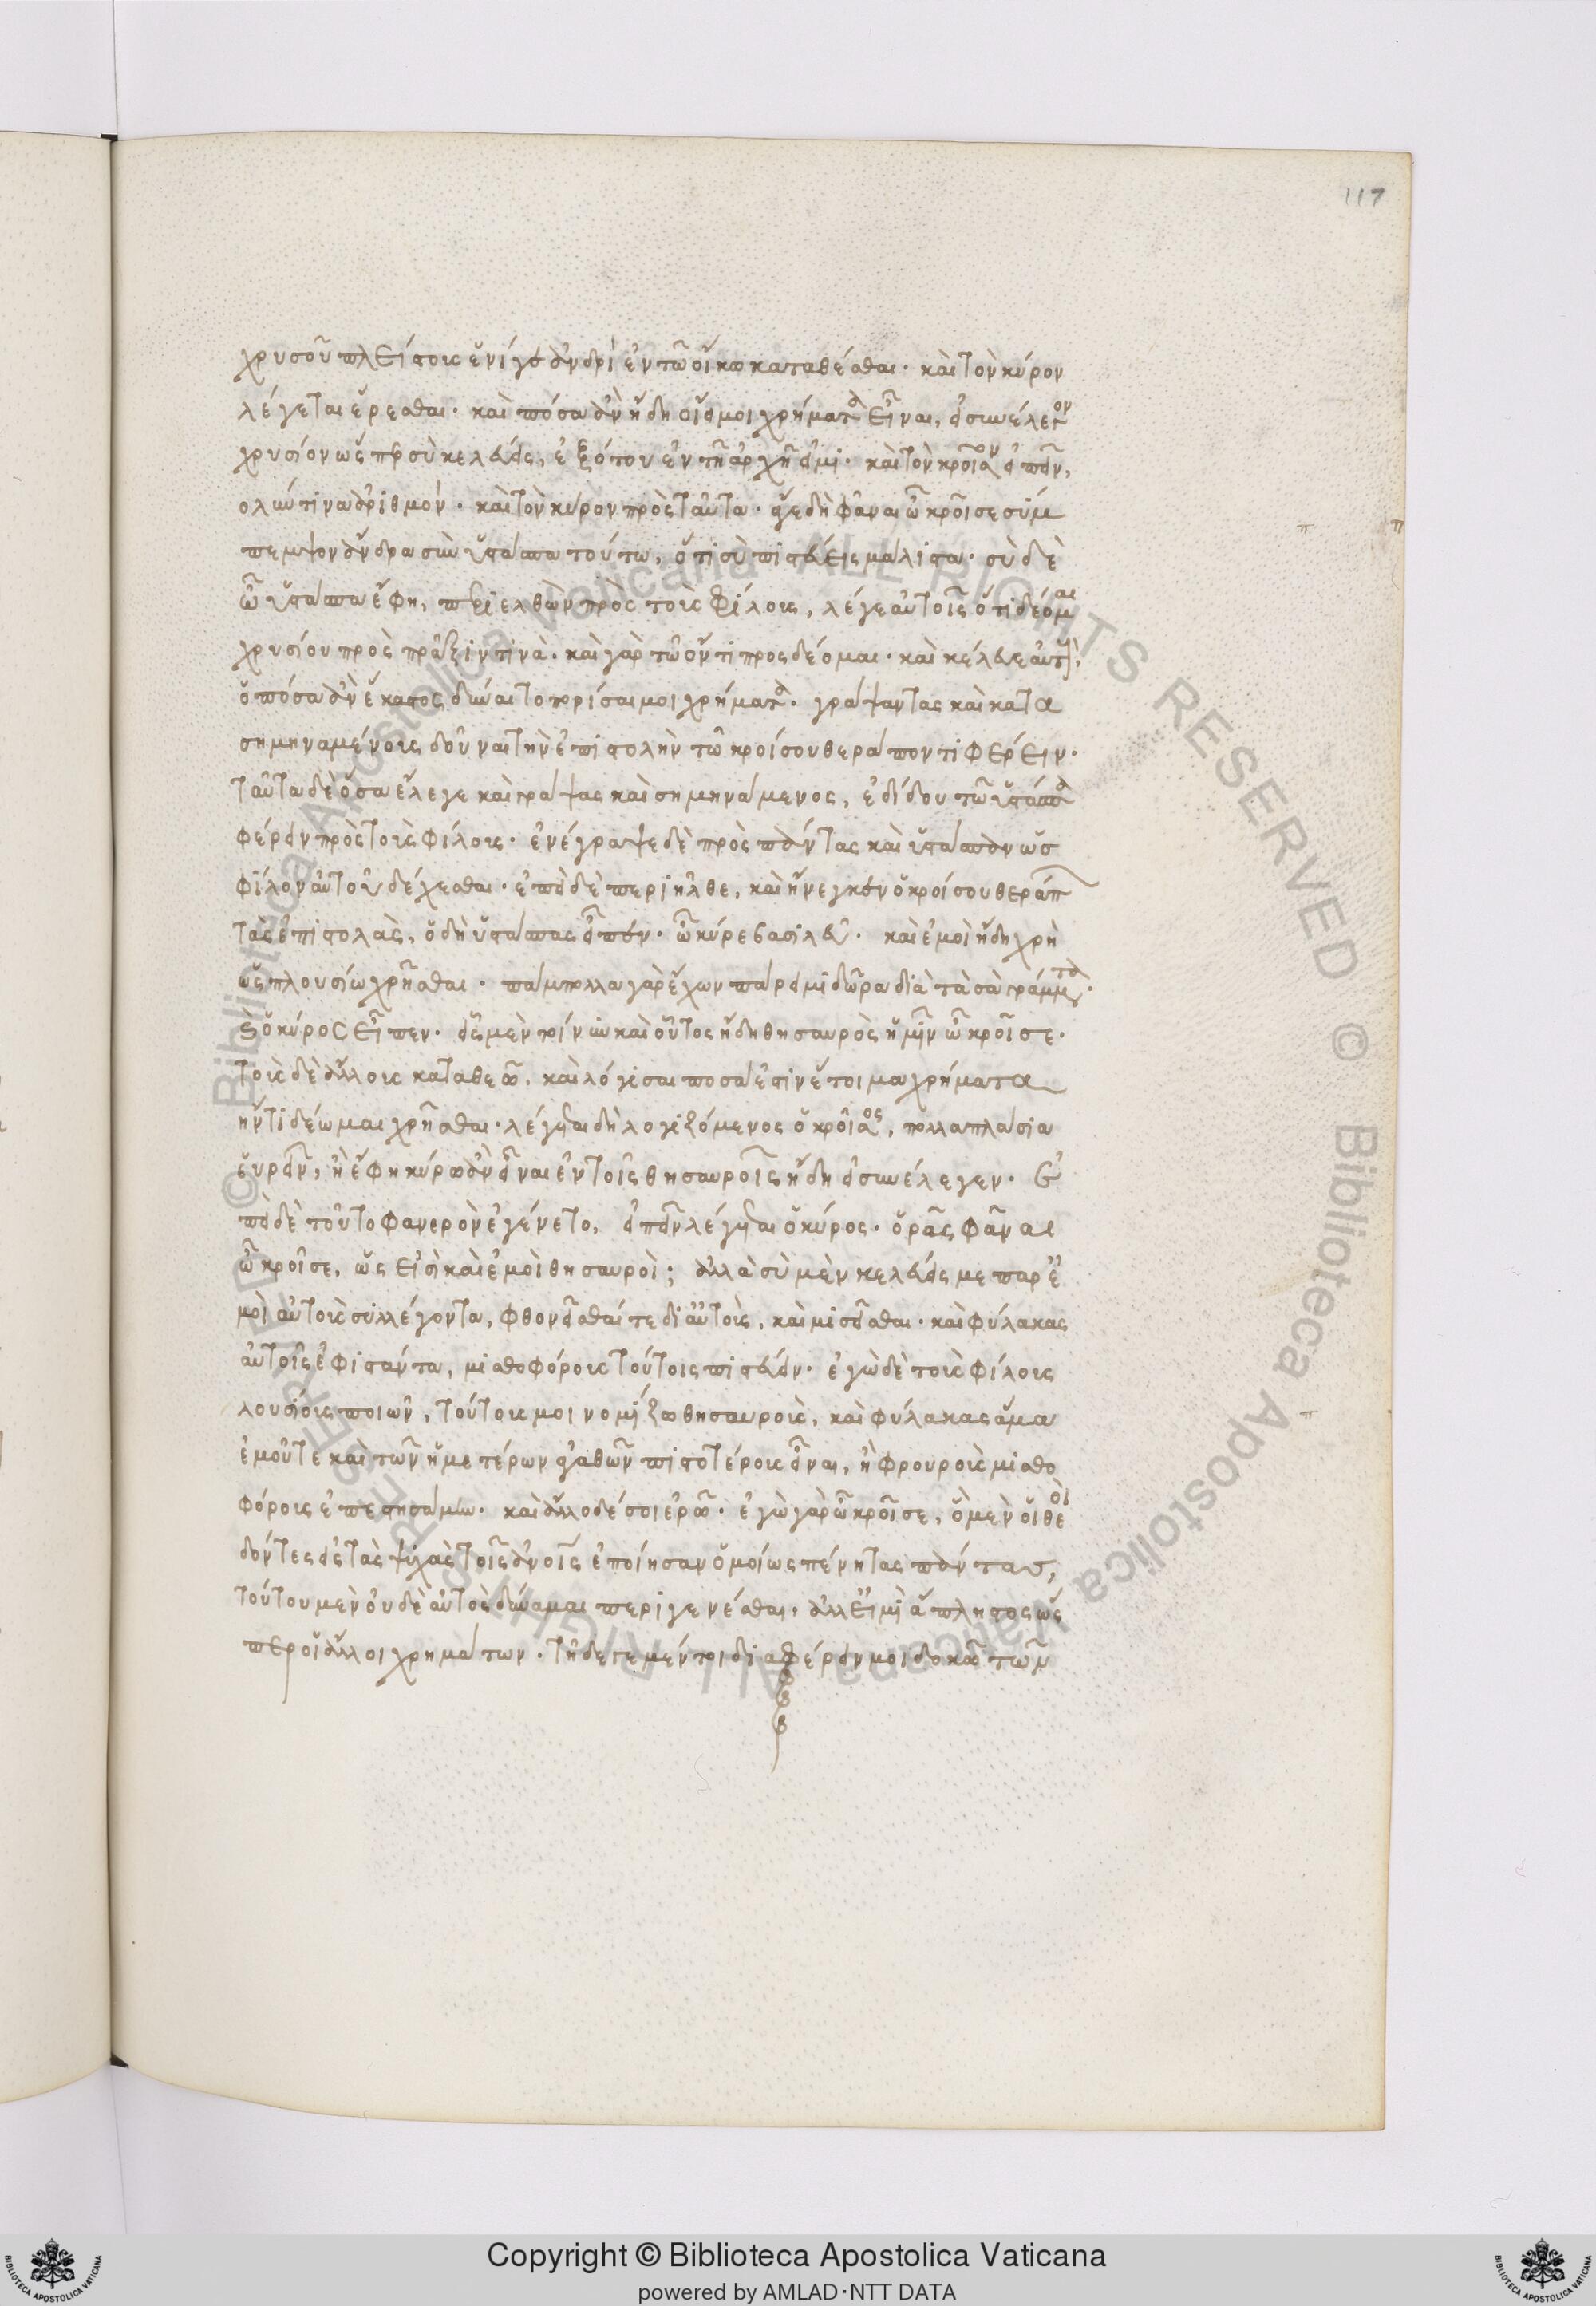 117
χρυσοῦ πλείστους ἑνί γε ἀνδρὶ ἐν τῶ οἴκω καταθέσθαι· καὶ τὸν κύρον
λέγεται ἔρεσθαι· καὶ πόσα ἂν ἤδη οἴει μοι χρήματα εἶναι, εἰ συνέλεγον
χρυσίον ὥσπερ σὺ κελεύεις, ἐξ ὅτου ἐν τῆ ἀρχῆ εἰμί· καὶ τὸν κροῖσον εἰπεῖν,
πολύν τινα ἀριθμόν· καὶ τὸν κύρον πρὸς ταῦτα· ἄγε δὴ φάναι ὦ κροῖσε σύμ
πεμψον ἄνδρα σὺν ὑστάσπα τούτω, ὅτι σὺ πιστεύεις μάλιστα· σὺ δὲ
ὦ ὑστάσπα ἔφη, περιελθὼν πρὸς τοὺς φίλους, λέγε αὐτοῖς ὅτι δέομαι
χρυσίου πρὸς πρᾶξίν τινα· καὶ γὰρ τῶ ὄντι προσδέομαι· καὶ κέλευε αὐτοὺς,
ὁπόσα ἂν ἕκαστος δύναιτο πορίσαι μοι χρήματα· γράψαντας καὶ κατα
σημηναμένους δοῦναι τὴν ἐπιστολὴν τῶ κροίσου θεράποντι φέρειν·
ταῦτα δὲ ὅσα ἔλεγε καὶ γράψας καὶ σημηνάμενος, ἐδίδου τῶ ὑστάσπα
φέρειν πρὸς τοὺς φίλους· ἐνέγραψε δὲ πρὸς πάντας καὶ ὑστάσπαν ὡσ
φίλον αὐτοῦ δέχεσθαι· ἐπεὶ δὲ περιῆλθε, καὶ ἤνεγκεν ὁ κροίσου θεράπων
τὰς ἐπιστολὰς, ὁ δὴ ὑστάσπας εἶπεν· ὦ κύρε βασιλεῦ· καὶ ἐμοὶ ἤδη χρὴ
ὡς πλουσίω χρῆσθαι· πάμπολλα γὰρ ἔχων πάρειμι δῶρα διὰ τὰ σὰ γράμματα·
καὶ ὁ κύρος εἶπεν· εἷς μὲν τοίνυν καὶ οὗτος ἤδη θησαυρὸς ἡμῖν ὦ κροῖσε·
τοὺς δὲ ἄλλους καταθεῶ, καὶ λόγισαι πόσα ἐστὶν ἕτοιμα χρήματα
ἤν τι δέωμαι χρῆσθαι· λέγεται δὴ λογιζόμενος ὁ κροῖσος, πολλαπλάσια
εὑρεῖν, ἢ ἔφη κύρω ἂν εἶναι ἐν τοῖς θησαυροῖς ἤδη εἰ συνέλεγεν· ἐ
πεὶ δὲ τοῦτο φανερὸν ἐγένετο, εἰπεῖν λέγεται ὁ κύρος· ὁρᾶς φάναι
ὦ κροῖσε, ὡς εἰσὶ καὶ ἐμοὶ θησαυροὶ; ἀλλὰ σὺ μὲν κελεύεις με παρ' ἐ
μοὶ αὐτοὺς συλλέγοντα, φθονεῖσθαί τε δι' αὐτοὺς, καὶ μισεῖσθαι· καὶ φύλακας
αὐτοῖς ἐφιστάντα, μισθοφόρους τούτοις πιστεύειν· ἐγὼ δὲ τοὺς φίλους
λουσίους ποιῶν, τούτους μοι νομίζω θησαυροὺς, καὶ φύλακας ἅμα
ἐμοῦ τε καὶ τῶν ἡμετέρων ἀγαθῶν πιστοτέρους εἶναι, ἢ φρουροὺς μισθο
φόρους ἐπεστησάμην· καὶ ἄλλο δέ σοι ἐρῶ· ἐγὼ γὰρ ὦ κροῖσε, ὃ μὲν οἱ θεοὶ
δόντες εἰς τὰς ψυχὰς τοῖς ἀνοις ἐποίησαν ὁμοίως πένητας πάντασ,
τούτου μὲν οὐδὲ αὐτὸς δύναμαι περιγενέσθαι, ἀλλ' εἰμὶ ἄπληστος ὥς
περ οἱ ἄλλοι χρημάτων· τῆδέ γε μέντοι διαφέρειν μοι δοκῶ τῶν